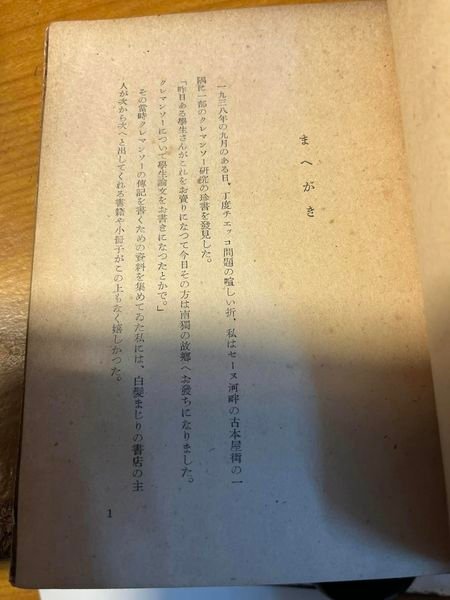 まへがき
一九三八年の九月のある日、丁度チェッコ問題の喧しい折、私はセーヌ河畔の古本屋街の一
隅に一部のクレマンソー研究の珍書を發見した。
「昨日ある學生さんがこれをお賣りになつて今日その方は南獨の故鄕へお發ちになりました。
クレマンソーについて學生論文をお書きになつたとかで。」
その當時クレマンソーの傳記を書くための資料を集めてゐた私には、白髮まじりの書店の主
人が次から次へと出してくれる書籍や小册子がこの上もなく嬉しかつた。
1